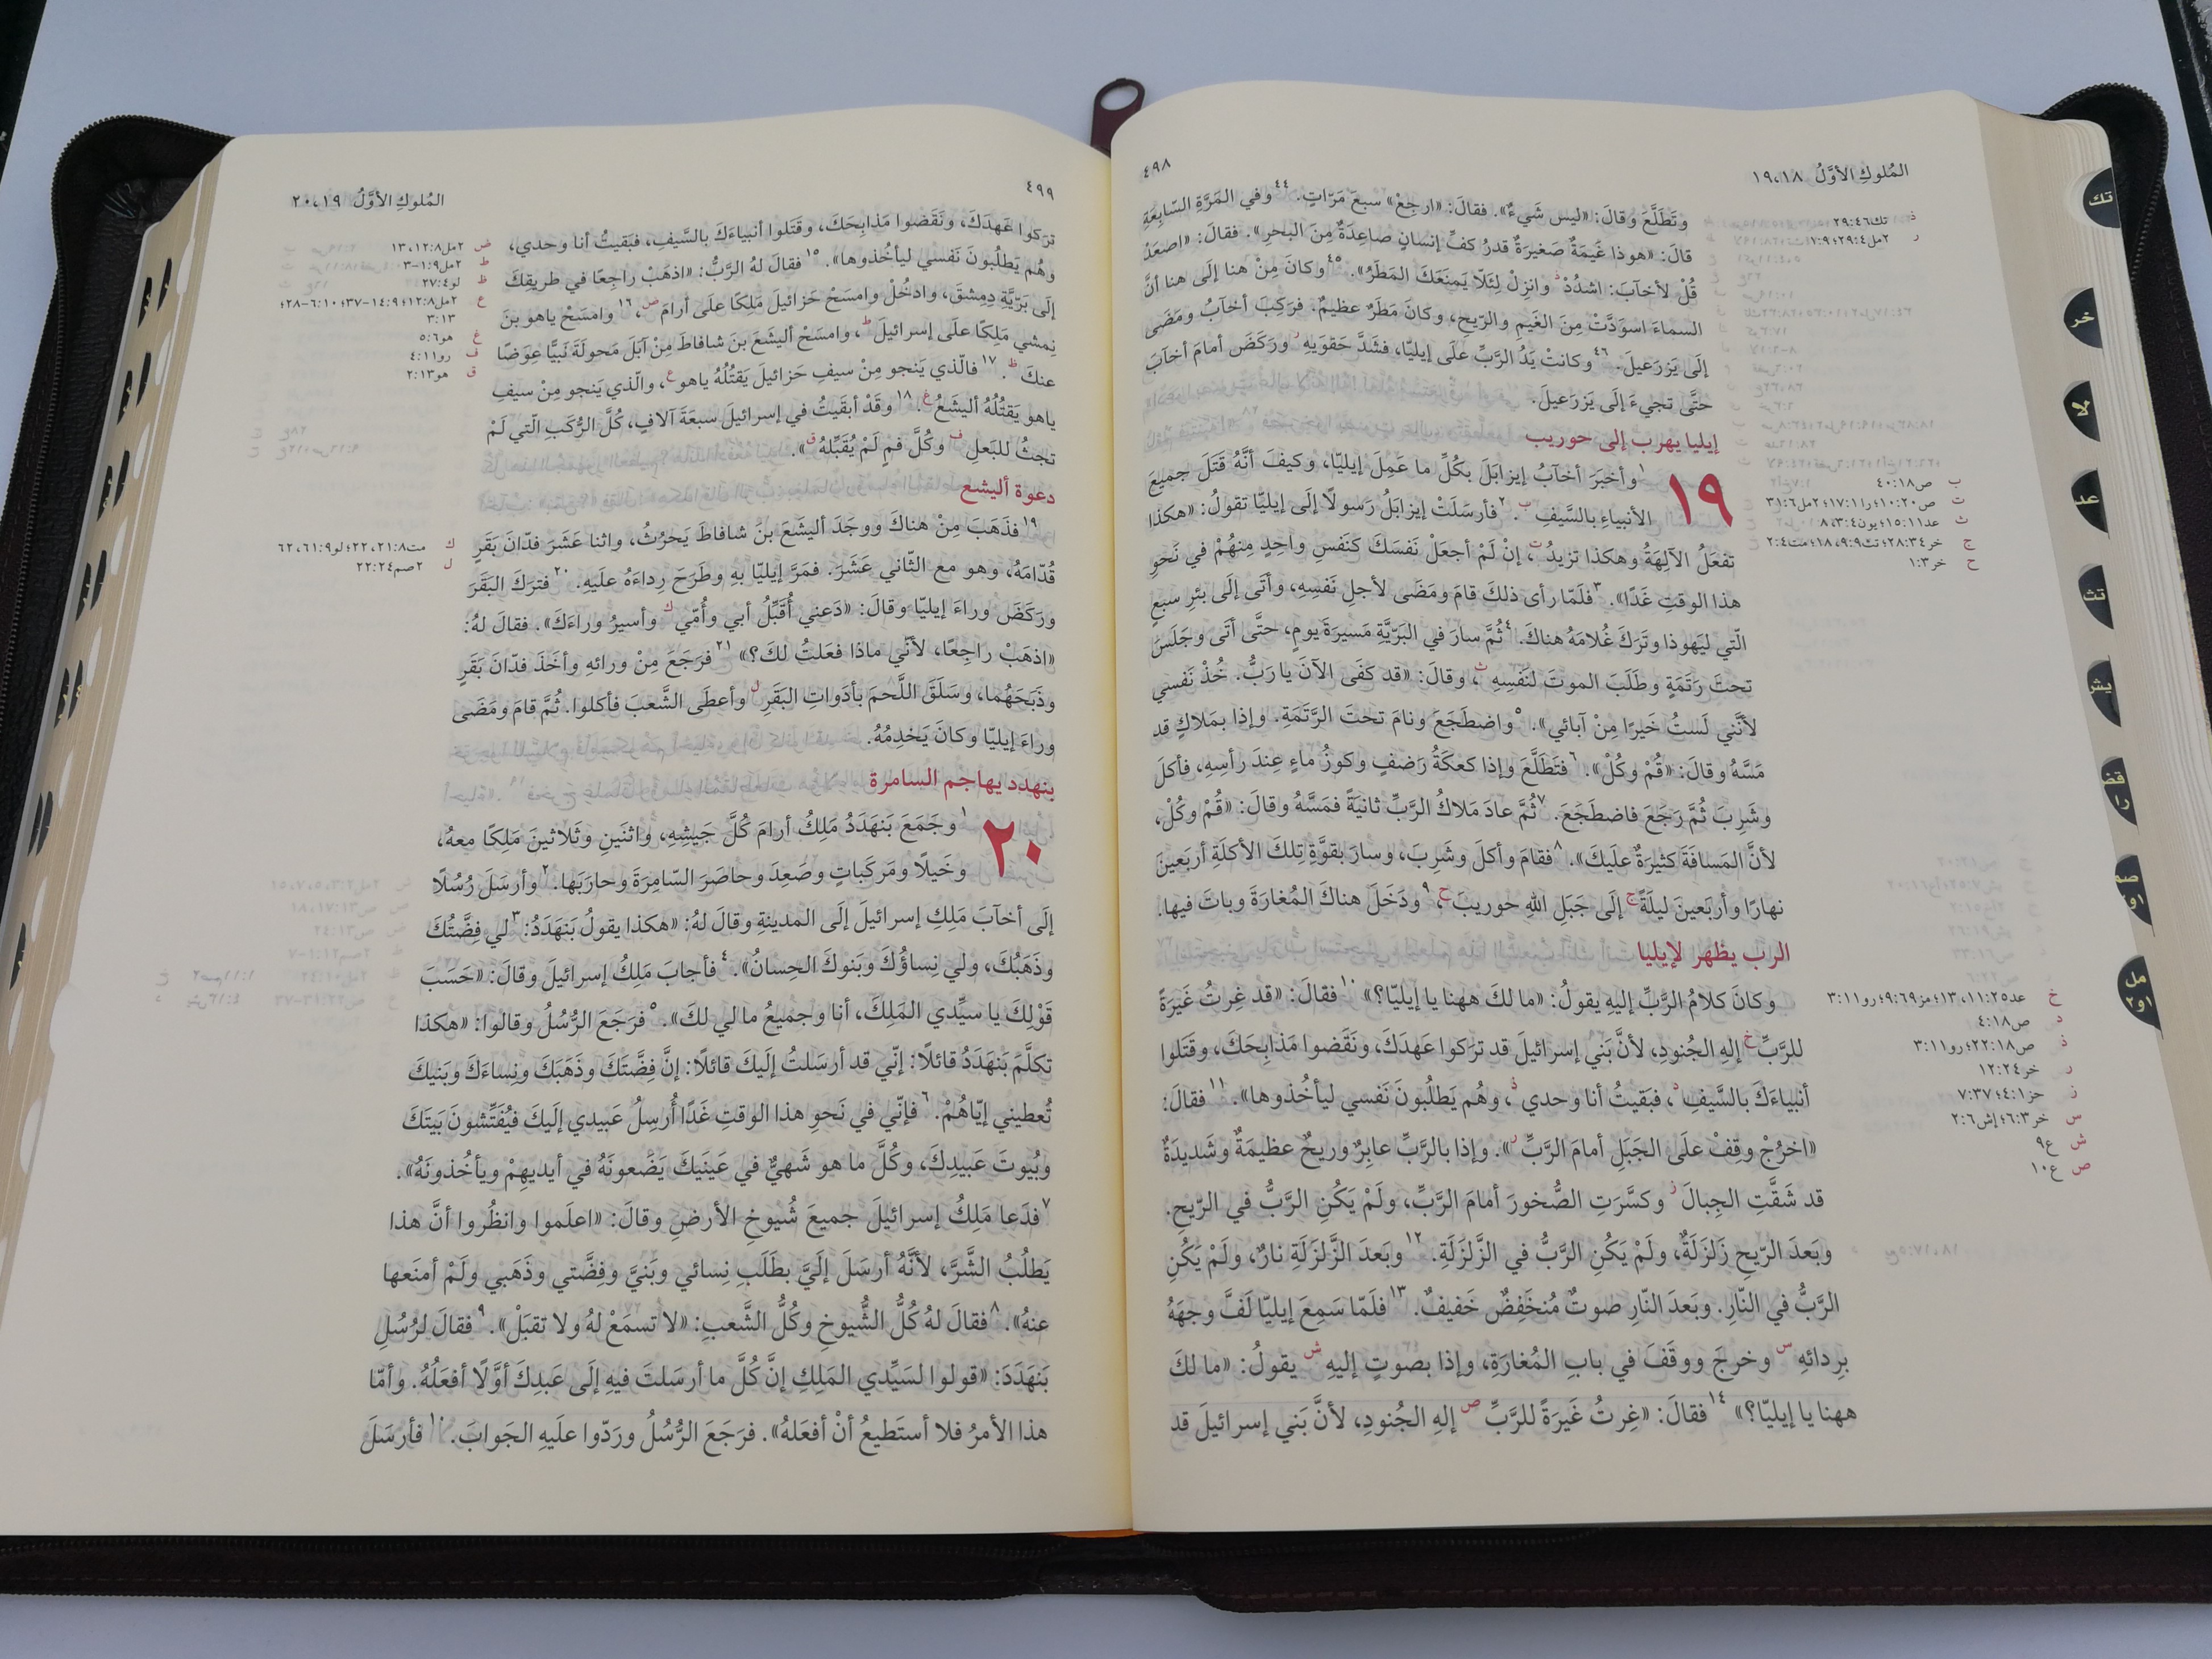 المُلوكِ الأوَّلُ ١٩،١٨
٤٩٨
وتَطَلَّعَ وقالَ: «ليس شَيءٌ». فقالَ: «ارجِعْ» سبعَ مَرّاتٍ. ٤٤وفي المَرَّةِ السّابِعَةِ
قالَ: «هوذا غَيمَةٌ صَغيرَةٌ قدرُ كفِّ إنسانٍ صاعِدَةٌ مِنَ البحرِ». فقالَ: «اصعَدْ
قُلْ لأخآبَ: اشدُدْ وانزِلْ لِئَلّا يَمنَعَكَ المَطَرُ». ٤٥وكانَ مِنْ هنا إلَى هنا أنَّ
السماءَ اسوَدَّتْ مِنَ الغَيمِ والرّيحِ، وكانَ مَطَرٌ عظيمٌ. فرَكِبَ أخآبُ ومَضَى
إلَى يَزرَعيلَ. ٤٦وكانتْ يَدُ الرَّبِّ علَى إيليّا، فشَدَّ حَقوَيهِ ر ورَكَضَ أمامَ أخآبَ
حتَّى تجيءَ إلَى يَزرَعيلَ.
إيليا يهرب إلى حوريب
١٩ ١وأخبَرَ أخآبُ إيزابَلَ بكُلِّ ما عَمِلَ إيليّا، وكيفَ أنَّهُ قَتَلَ جميعَ
الأنبياءِ بالسَّيفِ ب. ٢فأرسَلَتْ إيزابَلُ رَسولًا إلَى إيليّا تقولُ: «هكذا
تفعَلُ الآلِهَةُ وهكذا تزيدُ ت، إنْ لَمْ أجعَلْ نَفسَكَ كنَفسِ واحِدٍ مِنهُمْ في نَحوِ
هذا الوقتِ غَدًا». ٣فلَمّا رأى ذلكَ قامَ ومَضَى لأجلِ نَفسِهِ، وأتَى إلَى بئرِ سبعٍ
الّتي ليَهوذا وتَرَكَ غُلامَهُ هناكَ. ٤ثُمَّ سارَ في البَرّيَّةِ مَسيرَةَ يومٍ، حتَّى أتَى وجَلَسَ
تحتَ رَتَمَةٍ وطَلَبَ الموتَ لنَفسِهِ ث، وقالَ: «قد كفَى الآنَ يا رَبُّ. خُذْ نَفسي
لأنَّني لَستُ خَيرًا مِنْ آبائي». ٥واضطَجَعَ ونامَ تحتَ الرَّتَمَةِ. وإذا بمَلاكٍ قد
مَسَّهُ وقالَ: «قُمْ وكُلْ». ٦فتَطَلَّعَ وإذا كعكَةُ رَضفٍ وكوزُ ماءٍ عِندَ رأسِهِ، فأكلَ
وشَرِبَ ثُمَّ رَجَعَ فاضطَجَعَ. ٧ثُمَّ عادَ مَلاكُ الرَّبِّ ثانيَةً فمَسَّهُ وقالَ: «قُمْ وكُلْ،
لأنَّ المَسافَةَ كثيرَةٌ علَيكَ». ٨فقامَ وأكلَ وشَرِبَ، وسارَ بقوَّةِ تِلكَ الأكلَةِ أربَعينَ
نهارًا وأربَعينَ ليلَةً ج إلَى جَبَلِ اللهِ حوريبَ ح، ٩ودَخَلَ هناكَ المُغارَةَ وباتَ فيها.
الرب يظهر لإيليا
وكانَ كلامُ الرَّبِّ إليهِ يقولُ: «ما لكَ ههنا يا إيليّا؟» ١٠فقالَ: «قد غِرتُ غَيرَةً
للرَّبِّ خ إلهِ الجُنودِ، لأنَّ بَني إسرائيلَ قد ترَكوا عَهدَكَ، ونَقَضوا مَذابِحَكَ، وقَتَلوا
أنبياءَكَ بالسَّيفِ د، فبَقيتُ أنا وحدي ذ، وهُم يَطلُبونَ نَفسي ليأخُذوها». ١١فقالَ:
«اخرُجْ وقِفْ علَى الجَبَلِ أمامَ الرَّبِّ ر». وإذا بالرَّبِّ عابِرٌ وريحٌ عظيمَةٌ وشَديدَةٌ
قد شَقَّتِ الجِبالَ ز وكسَّرَتِ الصُّخورَ أمامَ الرَّبِّ، ولَمْ يَكُنِ الرَّبُّ في الرّيحِ.
وبَعدَ الرّيحِ زَلزَلَةٌ، ولَمْ يَكُنِ الرَّبُّ في الزَّلزَلَةِ. ١٢وبَعدَ الزَّلزَلَةِ نارٌ، ولَمْ يَكُنِ
الرَّبُّ في النّارِ. وبَعدَ النّارِ صوتٌ مُنخَفِضٌ خَفيفٌ. ١٣فلَمّا سَمِعَ إيليّا لَفَّ وجهَهُ
برِدائهِ س وخرجَ ووقَفَ في بابِ المُغارَةِ، وإذا بصوتٍ إليهِ ش يقولُ: «ما لكَ
ههنا يا إيليّا؟» ١٤فقالَ: «غِرتُ غَيرَةً للرَّبِّ ص إلهِ الجُنودِ، لأنَّ بَني إسرائيلَ قد
ذ تك٢٩:٤٦
ر ٢مل٢٩:٤؛ ١:٩
ب ص٤٠:١٨
ت ص١٠:٢٠؛ را١٧:١؛ ٢مل٣١:٦
ث عد١٥:١١؛ يون٣:٤، ٨
ج خر٢٨:٣٤؛ تث٩:٩، ١٨؛ مت٢:٤
ح خر١:٣
خ عد١١:٢٥، ١٣؛ مز٩:٦٩؛ رو٣:١١
د ص٤:١٨
ذ ص٢٢:١٨؛ رو٣:١١
ر خر١٢:٢٤
ز حز٤:١؛ ٧:٣٧
س خر٦:٣؛ إش٢:٦
ش ع٩
ص ع١٠
تك
خر
لا
عد
تث
يش
قض
را
صم
١و٢
مل
١و٢
٤٩٩
المُلوكِ الأوَّلُ ٢٠،١٩
ترَكوا عَهدَكَ، ونَقَضوا مَذابِحَكَ، وقَتَلوا أنبياءَكَ بالسَّيفِ، فبَقيتُ أنا وحدي،
وهُم يَطلُبونَ نَفسي ليأخُذوها». ١٥فقالَ لهُ الرَّبُّ: «اذهَبْ راجِعًا في طريقِكَ
إلَى بَرّيَّةِ دِمِشقَ، وادخُلْ وامسَحْ حَزائيلَ مَلِكًا علَى أرامَ ض، ١٦وامسَحْ ياهو بنَ
نِمشي مَلِكًا علَى إسرائيلَ ط، وامسَحْ أليشَعَ بنَ شافاطَ مِنْ آبَلَ مَحولَةَ نَبيًّا عِوَضًا
عنكَ ظ. ١٧فالّذي يَنجو مِنْ سيفِ حَزائيلَ يَقتُلُهُ ياهو ع، والّذي يَنجو مِنْ سيفِ
ياهو يَقتُلُهُ أليشَعُ غ. ١٨وقَدْ أبقَيتُ في إسرائيلَ سبعَةَ آلافٍ، كُلَّ الرُّكَبِ الّتي لَمْ
تجثُ للبَعلِ ف وكُلَّ فمٍ لَمْ يُقَبِّلهُ ق».
دعوة أليشع
١٩فذَهَبَ مِنْ هناكَ ووجَدَ أليشَعَ بنَ شافاطَ يَحرُثُ، واثنا عَشَرَ فدّانَ بَقَرٍ
قُدّامَهُ، وهو مع الثّاني عَشَرَ. فمَرَّ إيليّا بهِ وطَرَحَ رِداءَهُ علَيهِ. ٢٠فترَكَ البَقَرَ
ورَكَضَ وراءَ إيليّا وقالَ: «دَعني أُقَبِّلُ أبي وأُمّي ك وأسيرُ وراءَكَ». فقالَ لهُ:
«اذهَبْ راجِعًا، لأنّي ماذا فعَلتُ لكَ؟» ٢١فرَجَعَ مِنْ ورائهِ وأخَذَ فدّانَ بَقَرٍ
وذَبَحَهُما، وسَلَقَ اللَّحمَ بأدَواتِ البَقَرِ ل وأعطَى الشَّعبَ فأكلوا. ثُمَّ قامَ ومَضَى
وراءَ إيليّا وكانَ يَخدِمُهُ.
بنهدد يهاجم السامرة
٢٠ ١وجَمَعَ بَنهَدَدُ مَلِكُ أرامَ كُلَّ جَيشِهِ، واثنَينِ وثَلاثينَ مَلِكًا معهُ،
وخَيلًا ومَركَباتٍ وصَعِدَ وحاصَرَ السّامِرَةَ وحارَبَها. ٢وأرسَلَ رُسُلًا
إلَى أخآبَ مَلِكِ إسرائيلَ إلَى المدينةِ وقالَ لهُ: «هكذا يقولُ بَنهَدَدُ: ٣لي فِضَّتُكَ
وذَهَبُكَ، ولي نِساؤُكَ وبَنوكَ الحِسانُ». ٤فأجابَ مَلِكُ إسرائيلَ وقالَ: «حَسَبَ
قَوْلِكَ يا سيِّدي المَلِكَ، أنا وجميعُ ما لي لكَ». ٥فرَجَعَ الرُّسُلُ وقالوا: «هكذا
تكلَّمَ بَنهَدَدُ قائلًا: إنّي قد أرسَلتُ إلَيكَ قائلًا: إنَّ فِضَّتَكَ وذَهَبَكَ ونِساءَكَ وبَنيكَ
تُعطيني إيّاهُمْ. ٦فإنّي في نَحوِ هذا الوقتِ غَدًا أُرسِلُ عَبيدي إلَيكَ فيُفَتِّشونَ بَيتَكَ
وبُيوتَ عَبيدِكَ، وكُلَّ ما هو شَهيٌّ في عَينَيكَ يَضَعونَهُ في أيديهِمْ ويأخُذونَهُ».
٧فدَعا مَلِكُ إسرائيلَ جميعَ شُيوخِ الأرضِ وقالَ: «اعلَموا وانظُروا أنَّ هذا
يَطلُبُ الشَّرَّ، لأنَّهُ أرسَلَ إلَيَّ بطَلَبِ نِسائي وبَنيَّ وفِضَّتي وذَهَبي ولَمْ أمنَعها
عنهُ». ٨فقالَ لهُ كُلُّ الشُّيوخِ وكُلُّ الشَّعبِ: «لا تسمَعْ لهُ ولا تقبَلْ». ٩فقالَ لرُسُلِ
بَنهَدَدَ: «قولوا لسَيِّدي المَلِكِ إنَّ كُلَّ ما أرسَلتَ فيهِ إلَى عَبدِكَ أوَّلًا أفعَلُهُ. وأمّا
هذا الأمرُ فلا أستَطيعُ أنْ أفعَلهُ». فرَجَعَ الرُّسُلُ ورَدّوا علَيهِ الجَوابَ. ١٠فأرسَلَ
ض ٢مل١٢:٨، ١٣
ط ٢مل١:٩–٣
ظ لو٢٧:٤
ع ٢مل١٢:٨؛ ١٤:٩–٣٧؛ ٦:١٠–٢٨؛
٣:١٣
غ هو٥:٦
ف رو٤:١١
ق هو٢:١٣
ك مت٢١:٨، ٢٢؛ لو٦١:٩، ٦٢
ل ٢صم٢٢:٢٤